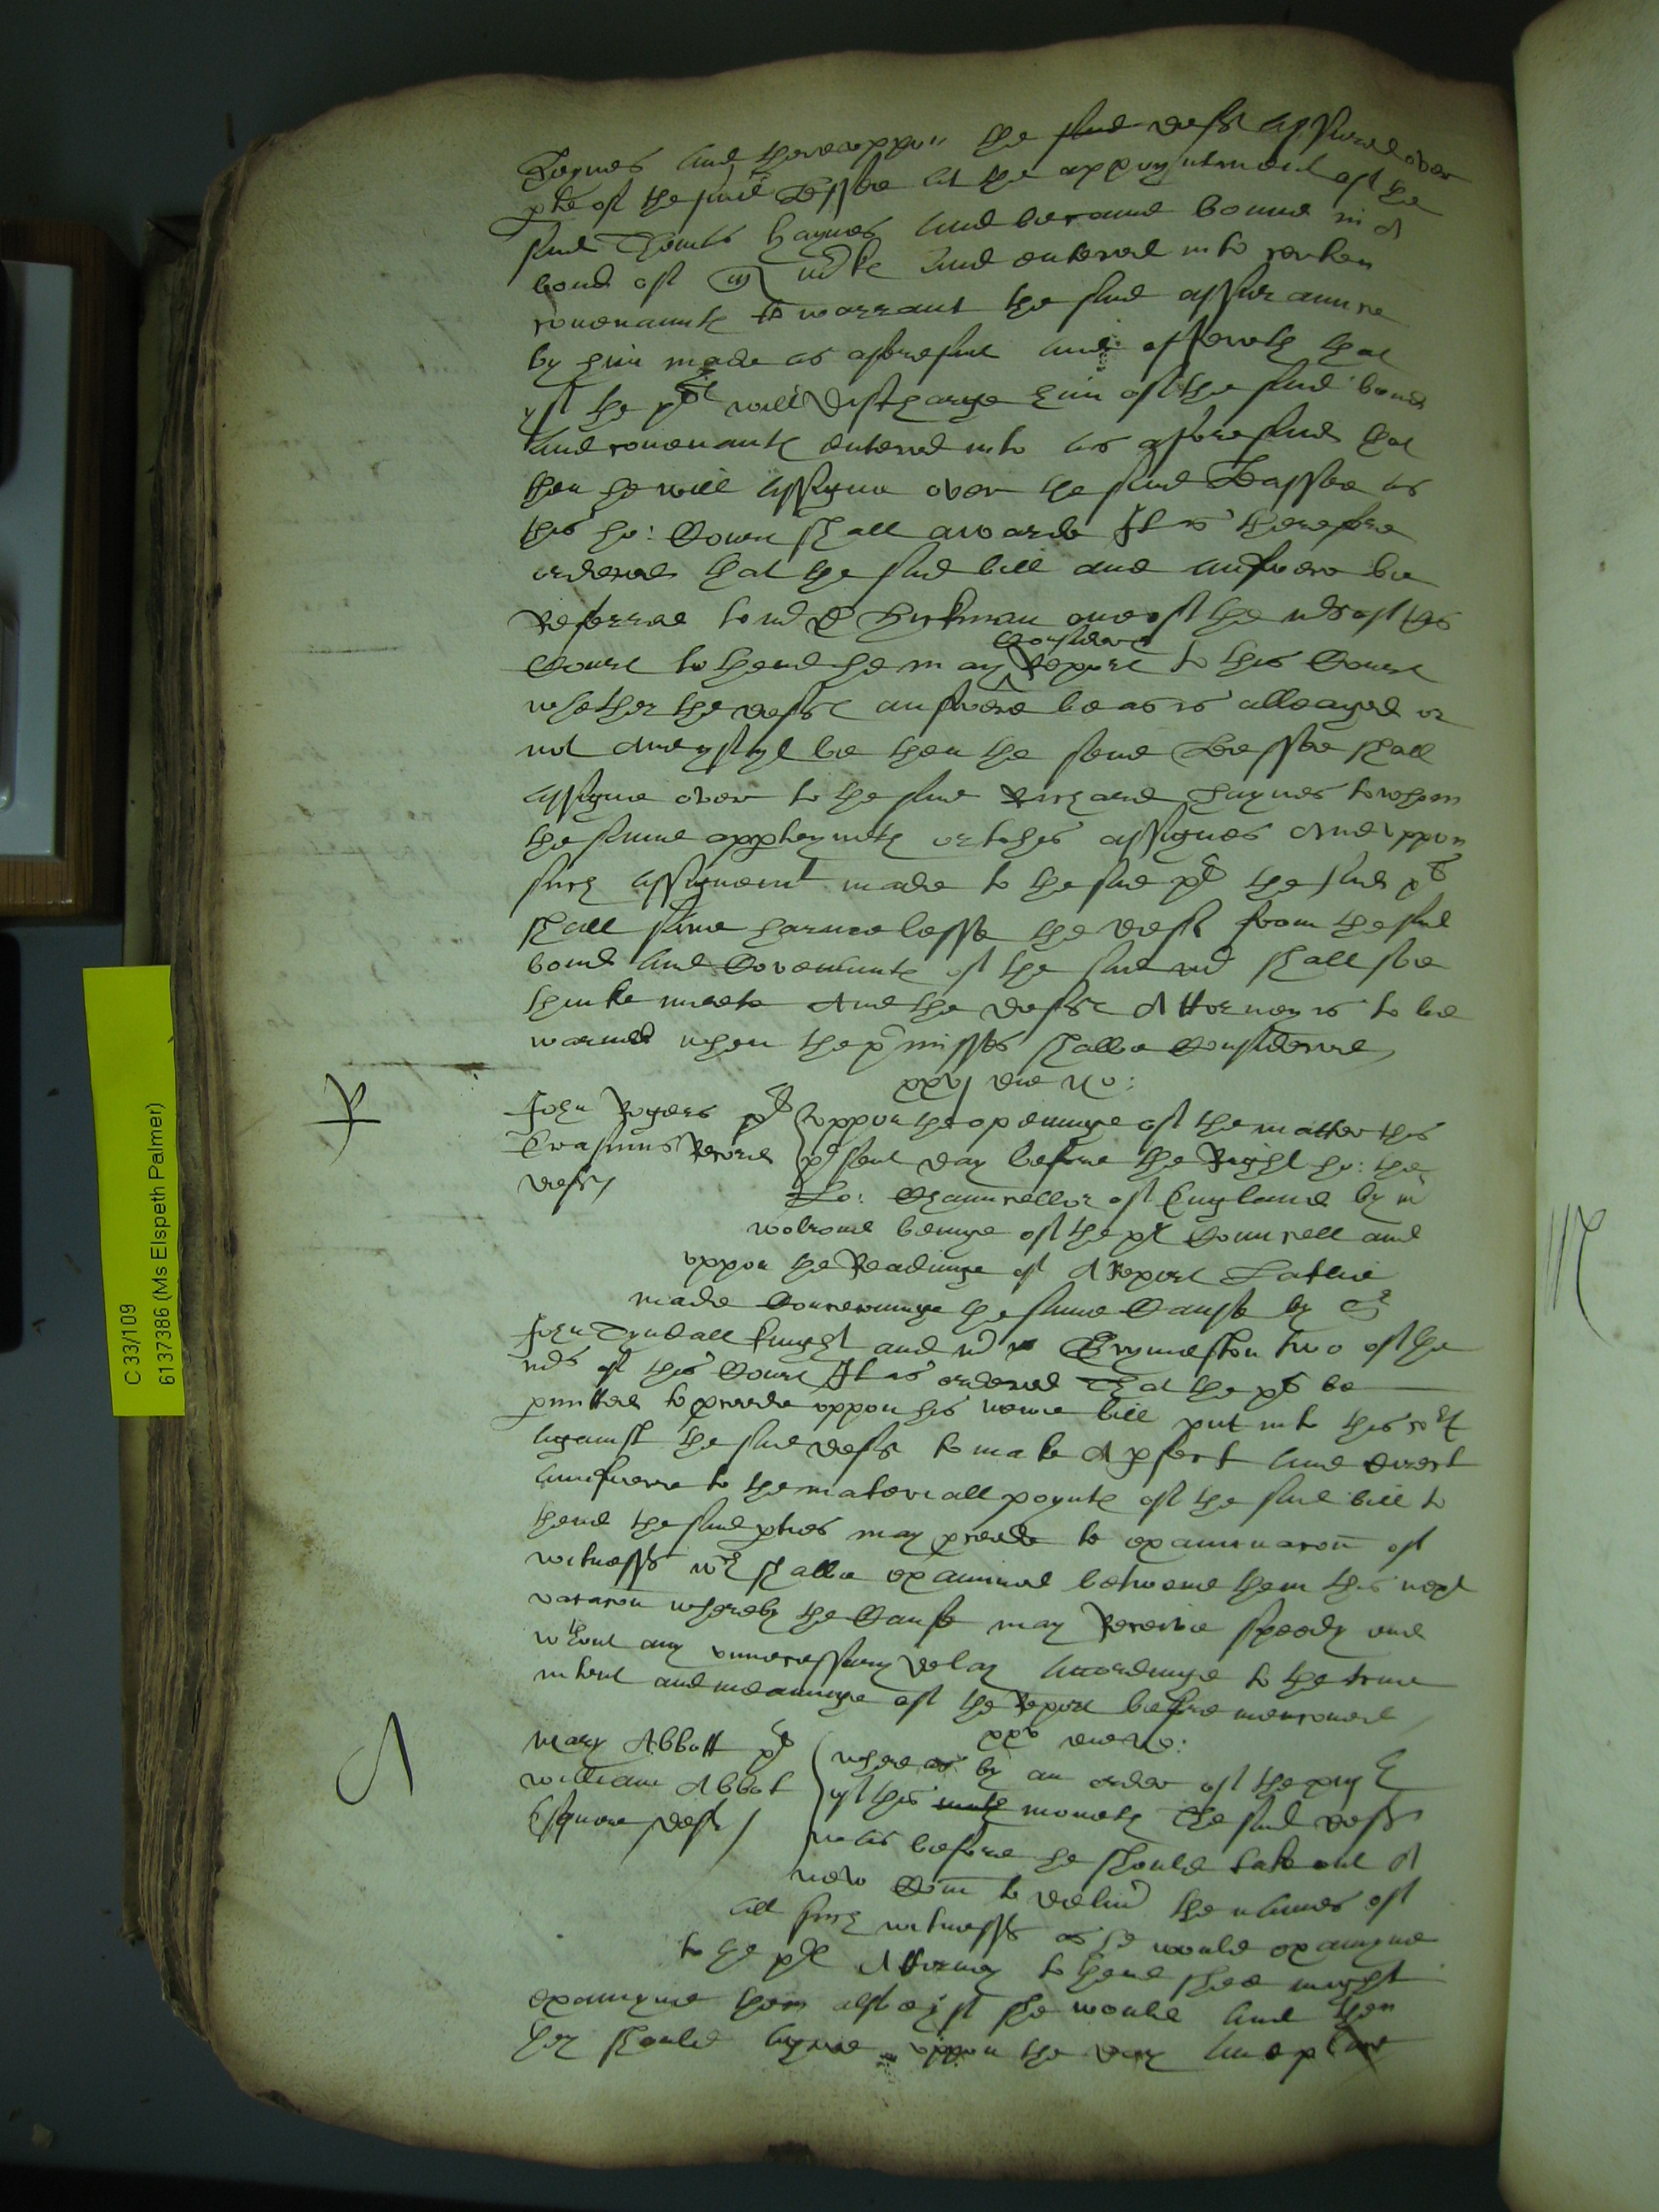 Haynes and thereuppon the said deft assured over
pte of the said Leasse at the appoyntment of the
said Thomas Haynes and became bound in A
bond of and entered into
covenauntes to warrant the said assuraunce
by him made as aforesaid and offereth that
yf the plt will discharge him of the said bond
and covenauntes entered into as aforesaid that
then he will assigne over the said Leassse as
this ho: Court shall awarde It is therefore
ordered that the said bill and answere be
Referred to mr D Hickman one of the mrs of this
Considere
Court to thend he may Report to this Court
whether the defts answere be as is alleaged or
not And yf yt be then the same Leassse shall
assigne over to the said Richard Haynes to whom
the same apperteyneth or to his assignes And uppon
such assignemt made to the said plt the said plt
shall save harmelesse the deft from the said
bond and Covenauntes of the said mr shall soe
thinke meete And the defts Attorney is to be
warned when the pmisses shalbe Considered
xxvj die No:
John Rogers plt
Erasmus Record
deft
uppon the openinge of the matter this
psent day before the Right ho: the
Lo: Chauncellor of England by mr
Wolrome beinge of the plts Councell and
uppon the Readinge of A Report Latelie
made Concerninge the same Cause by Sr
John Tyndall knight and mr Grymeston two of the
mrs of this Court It is ordered That the plt be
pmitted to proceede uppon his newe bill put into this cort
against the said deft to make A pfect and direct
aunswere to the materiall poyntes of the said bill to
thend the said pties may proceede to examinacon of
witnesses wch shalbe examined betweene them this next
vacacon whereby the Cause may Receive speedy end
wthout any unnecessary delay accordinge to the true
intent and meaninge of the Report before mencioned
xxv die No:
Mary Abbott plt
William Abbot
Esquire deft
whereas by an order of the
of this moneth The said deft
was before he should take out A
new Com to deliv the names of
all such witnesses as he would examyne
to the plts Attorney to thend shee might
examyne them alsoe yf she would and then
they should agree uppon the day and place
C 33/109
6137386 (Ms Elspeth Palmer)